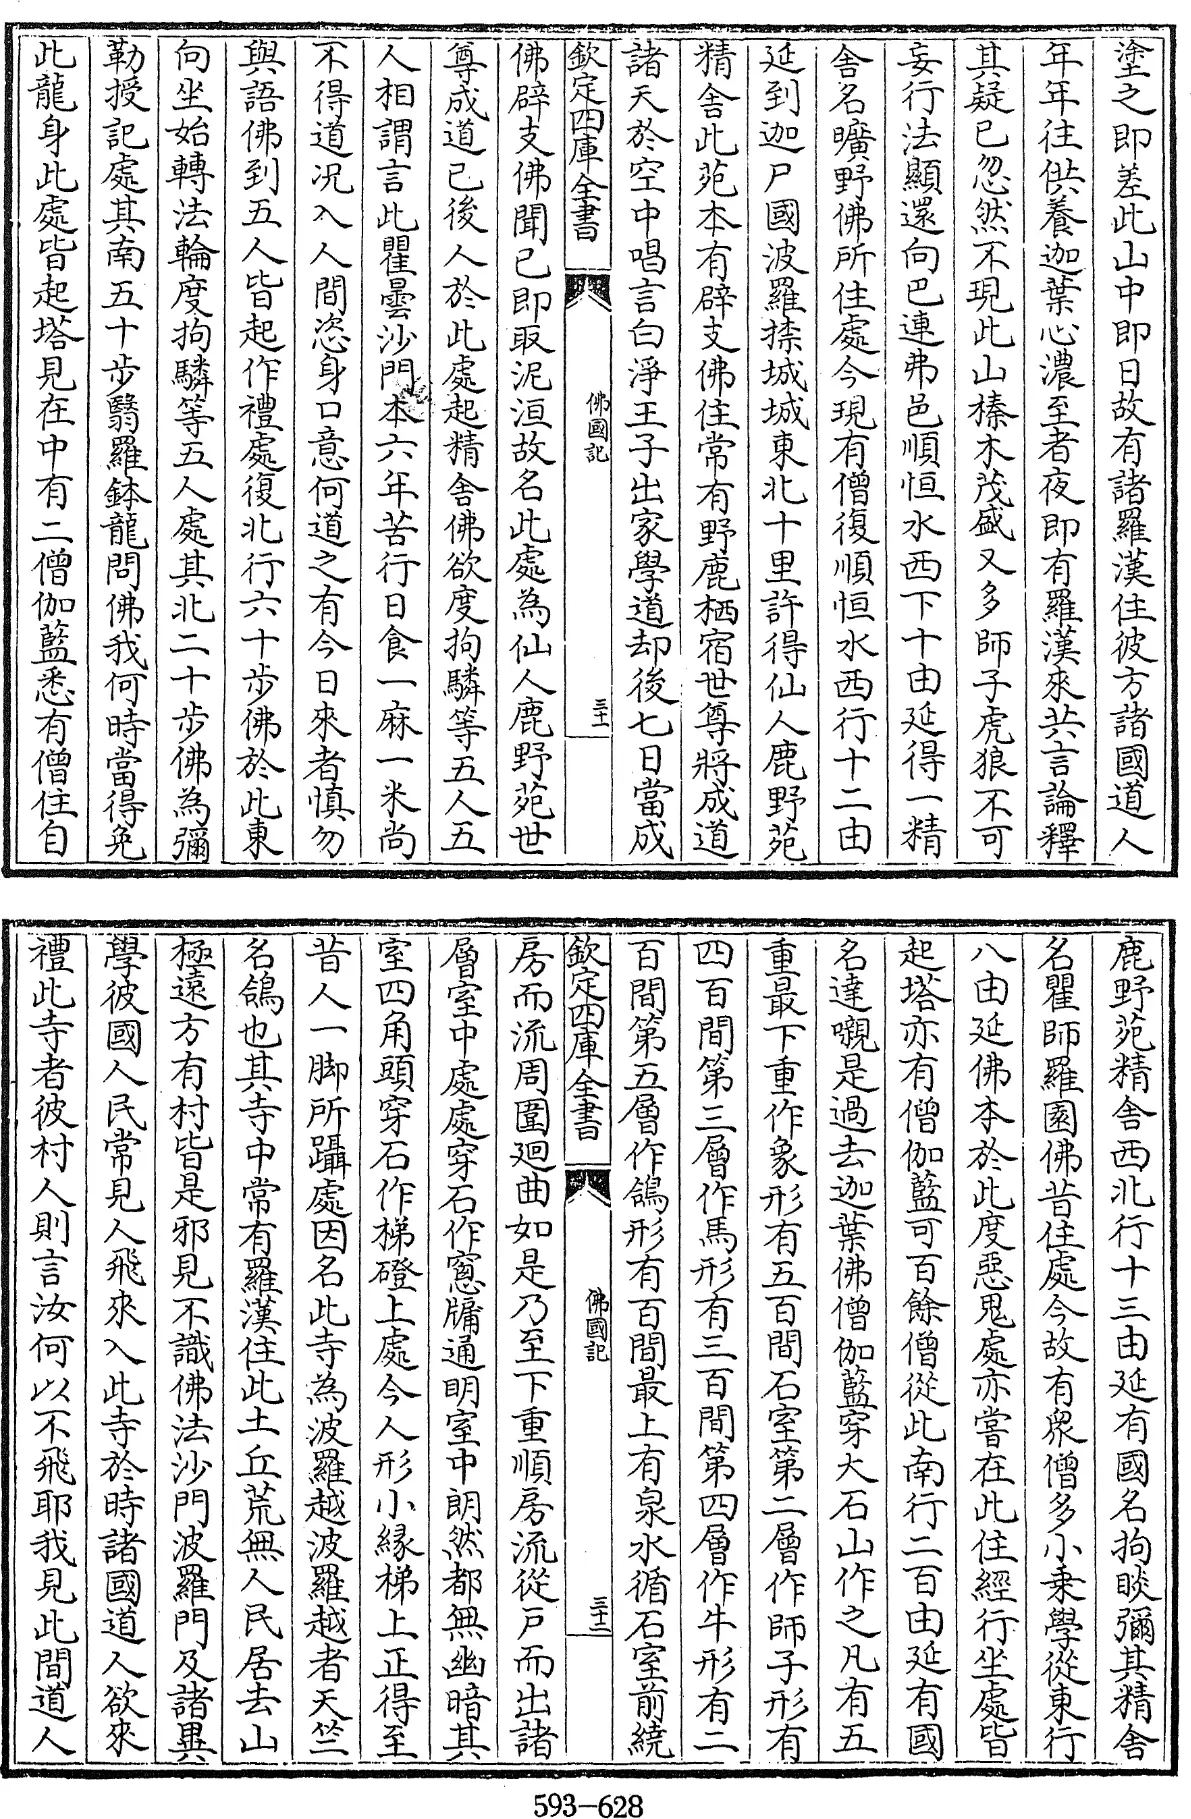 塗之即差此山中即日故有諸羅漢住彼方諸國道人
年年往供養迦葉心濃至者夜即有羅漢來共言論釋
其疑已忽然不現此山榛木茂盛又多師子虎狼不可
妄行法顯還向巴連弗邑順恒水西下十由延得一精
舍名曠野佛所住處今現有僧復順恒水西行十二由
延到迦尸國波羅㮈城城東北十里許得仙人鹿野苑
精舍此苑本有辟支佛住常有野鹿栖宿世尊將成道
諸天於空中唱言白淨王子出家學道却後七日當成
欽定四庫全書
佛國記
三十一
佛辟支佛聞已即取泥洹故名此處為仙人鹿野苑世
尊成道已後人於此處起精舍佛欲度拘驎等五人五
人相謂言此瞿曇沙門本六年苦行日食一麻一米尚
不得道况入人間恣身口意何道之有今日來者慎勿
與語佛到五人皆起作禮處復北行六十步佛於此東
向坐始轉法輪度拘驎等五人處其北二十步佛為彌
勒授記處其南五十步翳羅鉢龍問佛我何時當得免
此龍身此處皆起塔見在中有二僧伽藍悉有僧住自
鹿野苑精舍西北行十三由延有國名拘睒彌其精舍
名瞿師羅園佛昔住處今故有衆僧多小乗學從東行
八由延佛本於此度惡鬼處亦嘗在此住經行坐處皆
起塔亦有僧伽藍可百餘僧從此南行二百由延有國
名達嚫是過去迦葉佛僧伽藍穿大石山作之凡有五
重最下重作象形有五百間石室第二層作師子形有
四百間第三層作馬形有三百間第四層作牛形有二
百間第五層作鴿形有百間最上有泉水循石室前繞
欽定四庫全書
佛國記
三十二
房而流周圍廻曲如是乃至下重順房流從戸而出諸
層室中處處穿石作窻牖通明室中朗然都無幽暗其
室四角頭穿石作梯磴上處今人形小縁梯上正得至
昔人一脚所躡處因名此寺為波羅越波羅越者天竺
名鴿也其寺中常有羅漢住此土丘荒無人民居去山
極遠方有村皆是邪見不識佛法沙門波羅門及諸異
學彼國人民常見人飛來入此寺於時諸國道人欲來
禮此寺者彼村人則言汝何以不飛耶我見此間道人
593-628